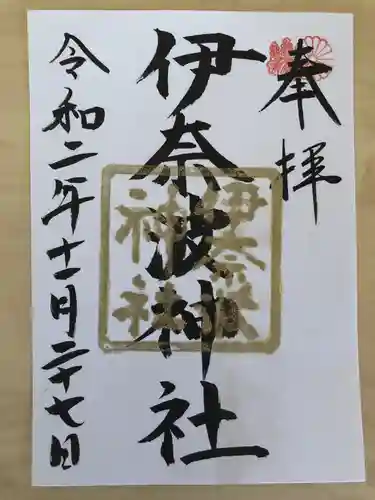 奉拝
伊奈波神社
伊奈波
神社
令和二年十一月二十七日